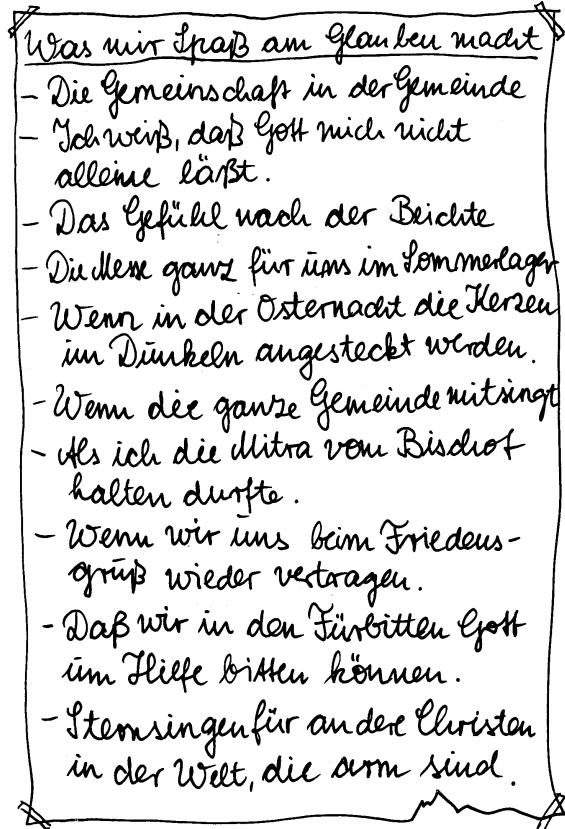 Was mir Spaß am Glauben macht
- Die Gemeinschaft in der Gemeinde
- Ich weiß, daß Gott mich nicht
alleine läßt.
- Das Gefühl nach der Beichte
- Die Messe ganz für uns im Sommerlager
- Wenn in der Osternacht die Kerzen
im Dunkeln angesteckt werden.
- Wenn die ganze Gemeinde mitsingt
- Als ich die Mitra vom Bischof
halten durfte.
- Wenn wir uns beim Friedens-
gruß wieder vertragen.
- Daß wir in den Fürbitten Gott
um Hilfe bitten können.
- Sternsingen für andere Christen
in der Welt, die arm sind.